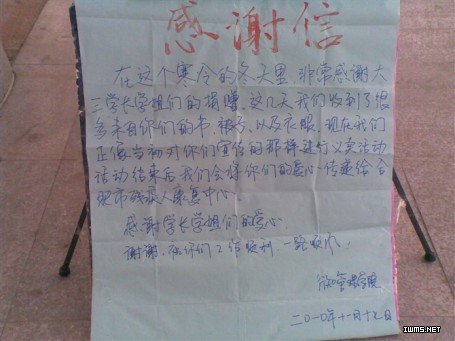 感谢信
在这个寒冷的冬天里，非常感谢大
三学长学姐们的捐赠，这几天我们收到了很
多来自你们的书、被子、以及衣服，现在我们
正像当初对你们宣传的那样进行义卖活动
活动结束后我们会将你们的爱心传递给合
肥市残疾人康复中心。
感谢学长学姐们的爱心
谢谢，祝你们工作顺利，一路顺风，
管理学院
二〇一〇年十一月十七日
IWMS.NET